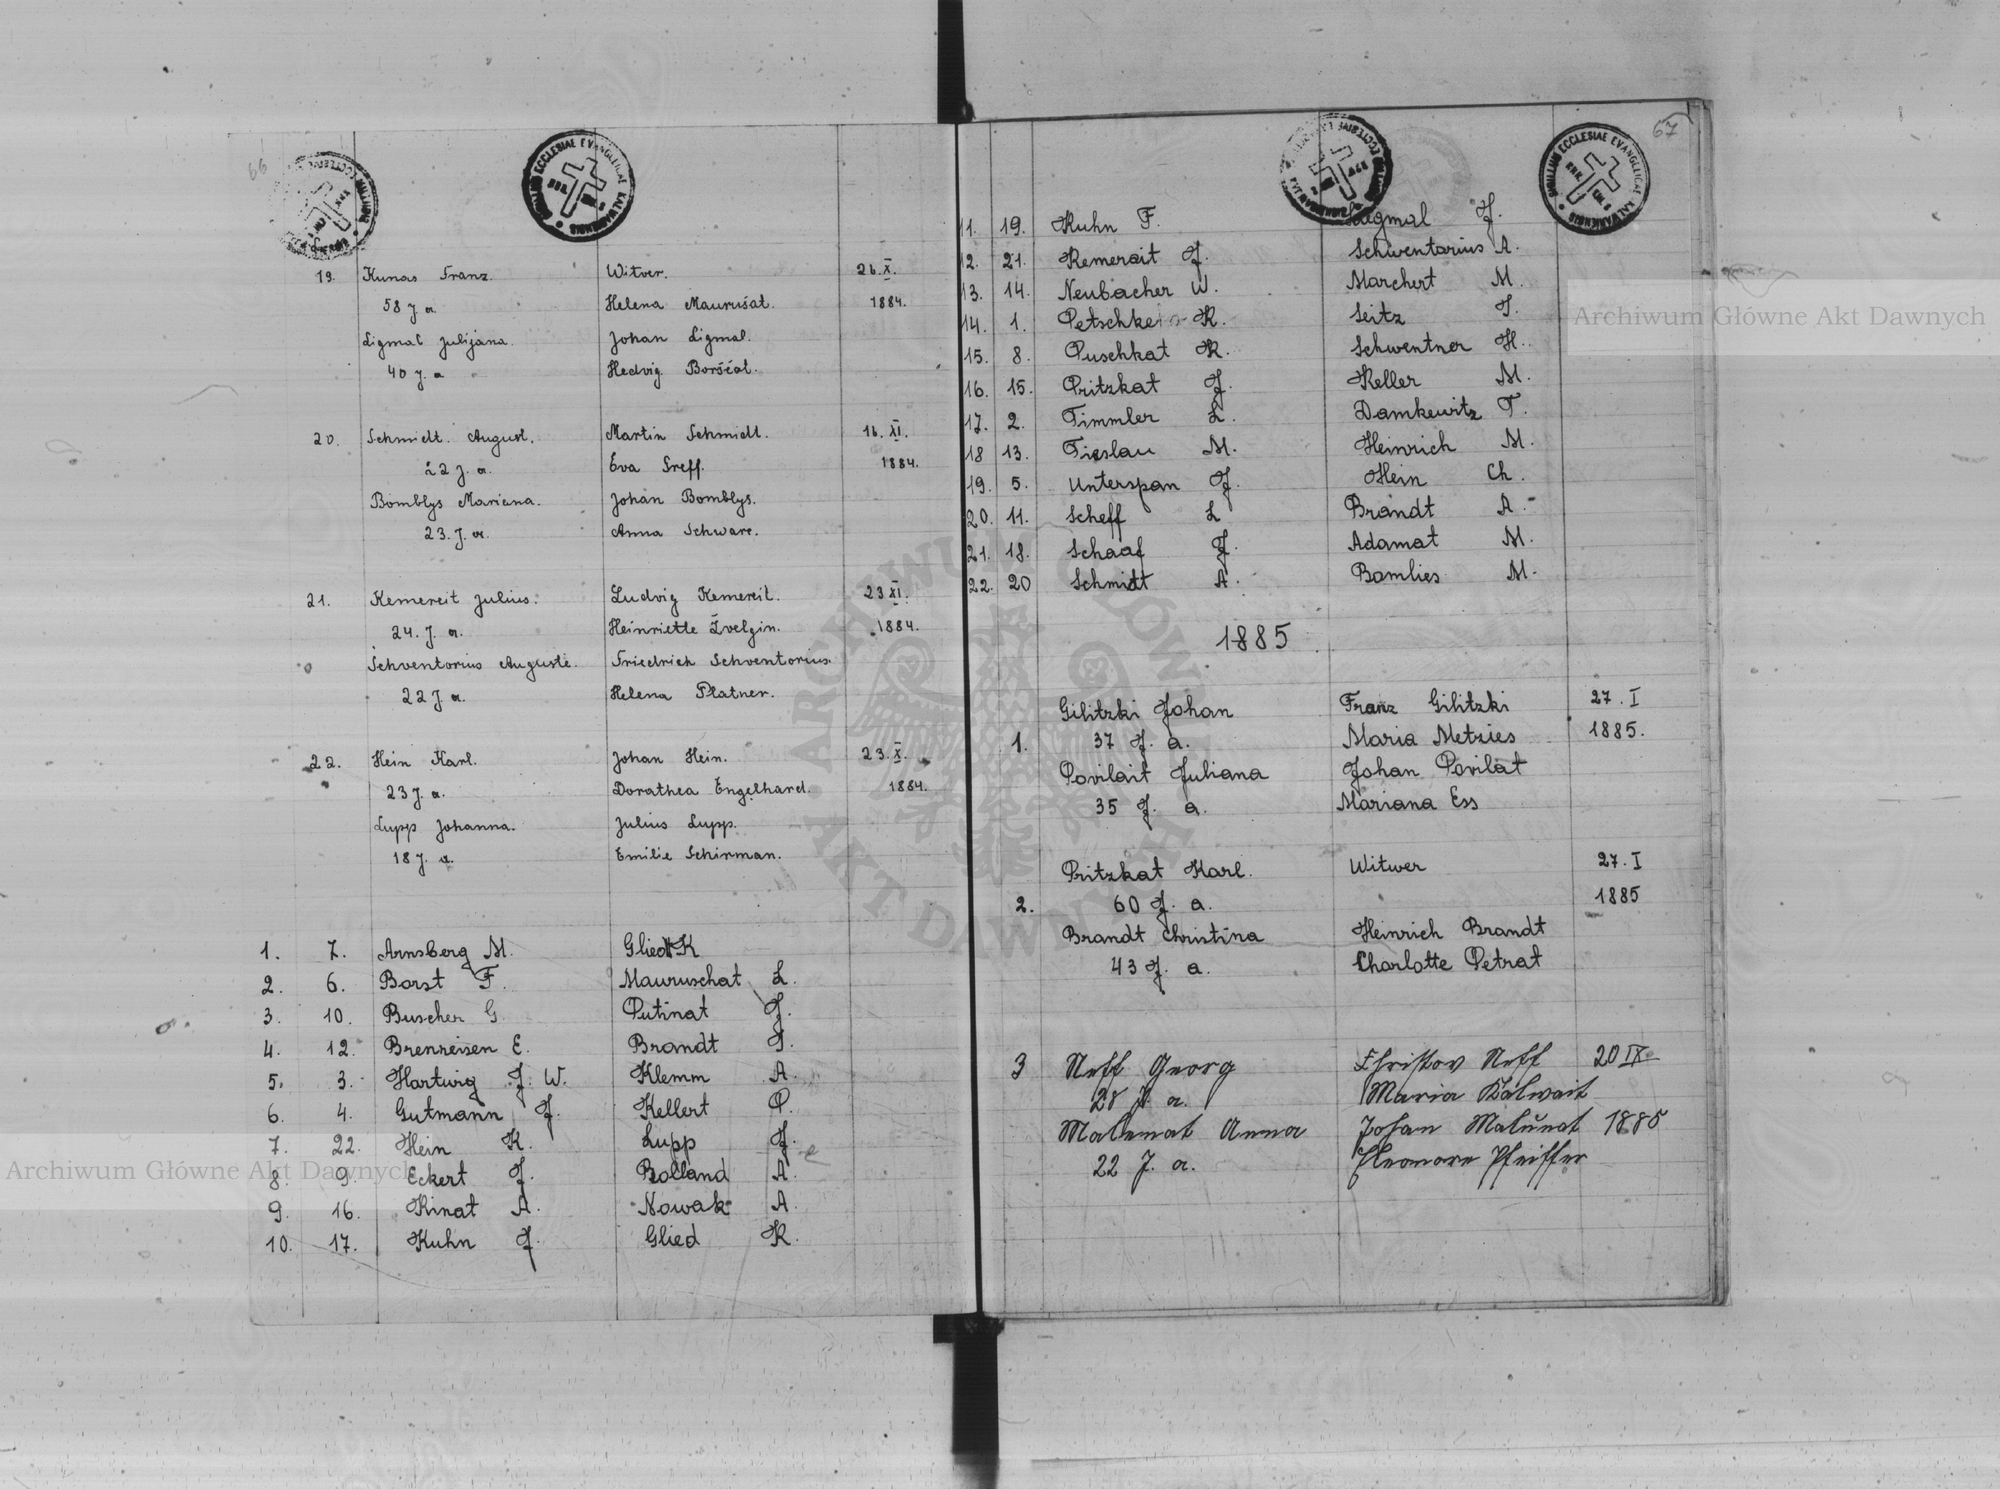 66
SIGILLUM ECCLESIAE EVANGELICAE KALWARIENSIS
19. Kunas Franz. Witver. 26.X.
58 J a Helena Maurušat. 1884.
Ligmal Julijana. Johan Ligmal.
40 J. a Hedvig
20. Schmidt. August. Martin Schmidt. 16. XI.
22 J. a. Eva Sreff. 1884.
Bomblys Mariana. Johan Bomblys.
23. J. a. Anna Schwarc.
21. Kemereit Julius. Ludvig Kemereit. 23 XI.
24. J. a. Heinriette Žvelgin. 1884.
Schventorius Auguste. Friedrich Schventorius.
22 J a. Helena Platner.
22. Hein Karl. Johan Hein. 23. X.
23 J. a. Dorathea Engelhard. 1884.
Lupp Johanna. Julius Lupp.
18 J. a. Emilie Schirman.
1. 7. Arnsberg M. Gliedt K
2. 6. Borst F. Mauruschat L.
3. 10. Buscher G. Putinat J.
4. 12. Brenreisen E. Brandt J.
5. 3. Hartwig J. W. Klemm A.
6. 4. Gutmann J. Kellert P.
7. 22. Hein K. Lupp J.
8. 9. Eckert J. Bolland A.
9. 16. Kinat A. Nowak A.
10. 17. Kuhn J. Glied K.
67
SIGILLUM ECCLESIAE EVANGELICAE KALWARIENSIS
11. 19. Kuhn F. Ligmal J.
12. 21. Kemerait J. Schwentorius A.
13. 14. Neubacher W. Marchert M.
14. 1. Petschkein K. Seitz J.
15. 8. Puschkat K. Schwentner H.
16. 15. Pritzkat J. Keller M.
17. 2. Timmler L. Damkewitz T.
18 13. Tieslau M. Heinrich M.
19. 5. Unterspan J. Hein Ch.
20. 11. Scheff L Brandt A.
21. 18. Schaaf J. Adamat M.
22. 20 Schmidt A. Bamlies M.
1885
Gilitzki Johan Franz Gilitzki 27. I
1. 37 J. a. Maria Metzies 1885.
Povilait Juliana Johan Povilat
35 J. a. Mariana Ess
Pritzkat Karl. Witwer 27. I
2. 60 J. a. 1885
Brandt Christina Heinrich Brandt
43 J. a. Charlotte Petrat
3 Neff Georg Christov Neff 20 IX
28 J. a. Maria Kalwait
Malunat Anna Johan Malunat 1885
22 J. a. Eleonore Pfeiffer
Archiwum Główne Akt Dawnych
Archiwum Główne Akt Dawnych
ARCHIWUM GŁÓWNE AKT DAWNYCH